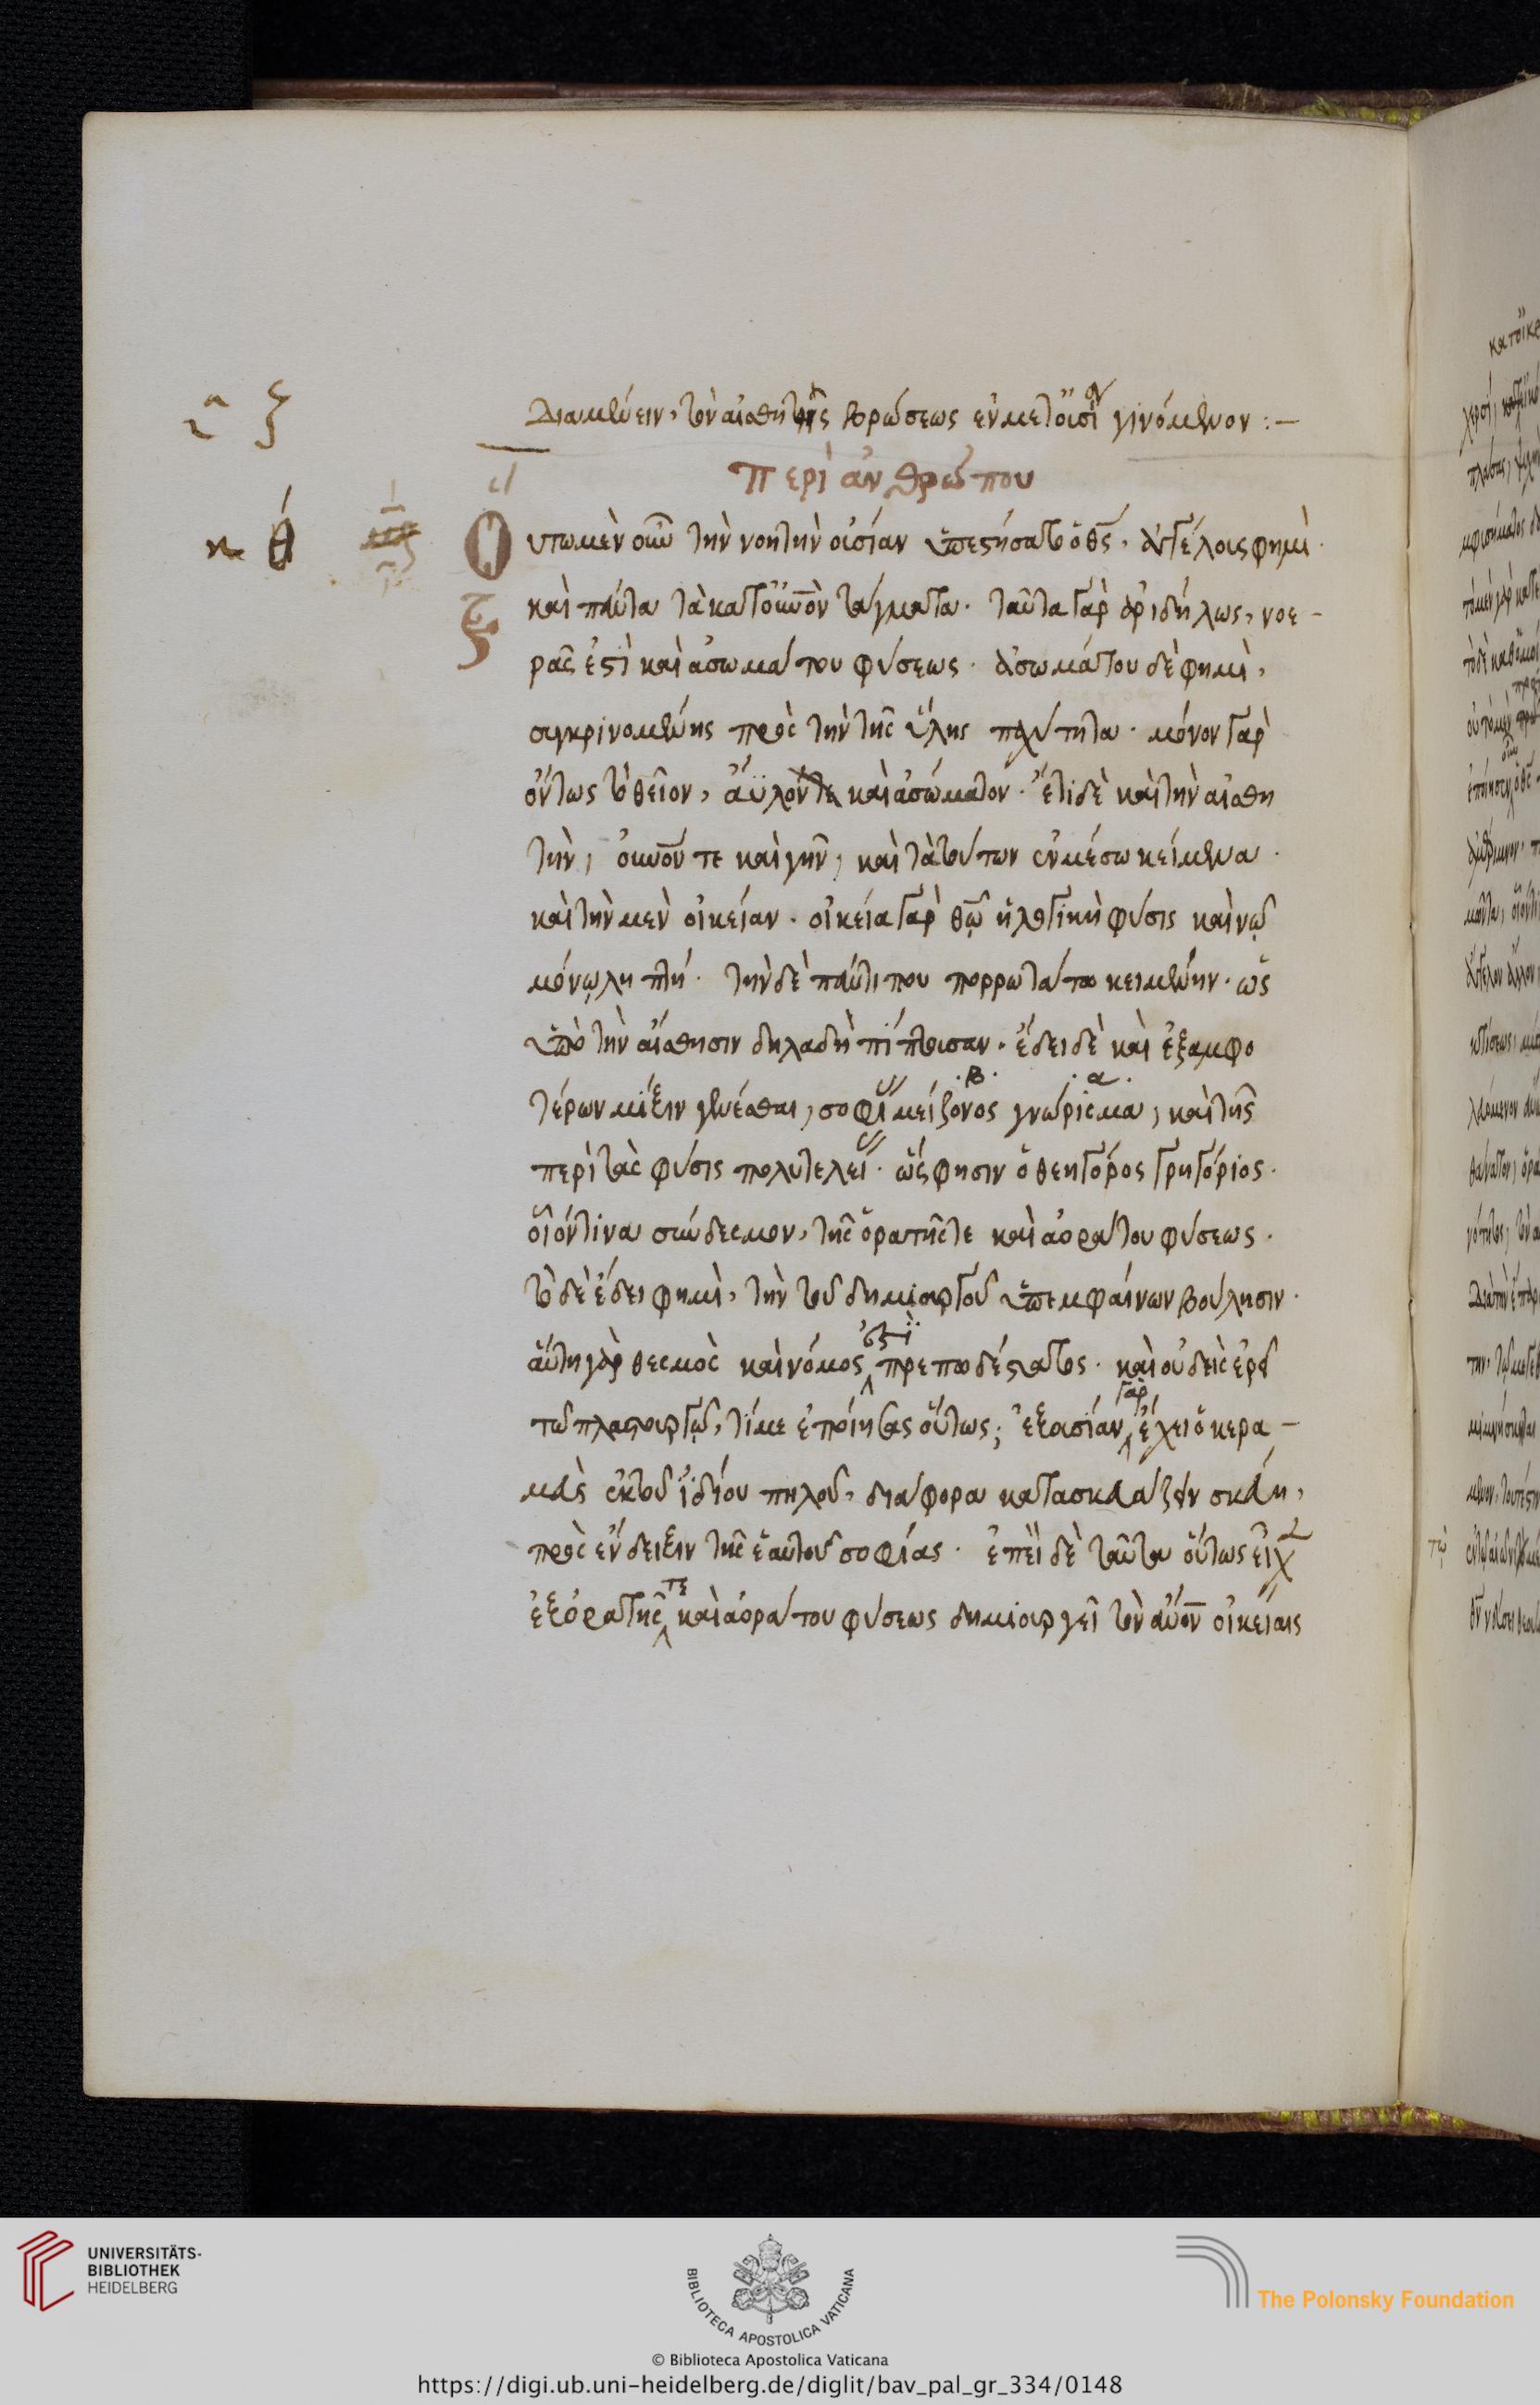 διαμένειν, τὸν αἰσθητῆς βρώσεως ἐν μετουσίᾳ γινόμενον :-
Περὶ ἀνθρώπου
κ θ
Οὕτω μὲν οὖν τὴν νοητὴν οὐσίαν ὑπεστήσατο ὁ θς, ἀγγέλους φημὶ
καὶ πάντα τὰ κατ' οὐνὸν τάγματα. ταῦτα γὰρ ἀριδήλως, νοε-
ρᾶς ἐστὶ καὶ ἀσωμάτου φύσεως. ἀσωμάτου δὲ φημὶ,
συγκρινομένης πρὸς τὴν τῆς ὕλης παχύτητα. μόνον γὰρ
ὄντως τὸ θεῖον, ἄϋλόν τε καὶ ἀσώματον. ἔτι δὲ καὶ τὴν αἰσθη
τὴν, οὐνόν τε καὶ γῆν, καὶ τὰ τούτων ἐν μέσω κείμενα.
καὶ τὴν μὲν οἰκείαν. οἰκεία γὰρ θῶ ἡ λογικὴ φύσις καὶ νῷ
μόνῳ ληπτή. τὴν δὲ πάντι που πορρωτάτω κειμένην. ὡς
ὑπὸ τὴν αἴσθησιν δηλαδὴ πίπτουσαν. ἔδει δὲ καὶ ἐξ ἀμφο
τέρων μίξιν γενέσθαι, σοφί μείζονος γνώρισμα, καὶ τῆς
περὶ τὰς φύσις πολυτελεί. ὥς φησιν ὁ θεηγόρος γρηγόριος.
οἷόν τινα σύνδεσμον, τῆς ὁρατῆς τε καὶ ἀοράτου φύσεως.
τὸ δὲ ἔδει φημὶ, τὴν τοῦ δημιουργοῦ ὑπεμφαίνων βούλησιν.
αὕτη γὰρ θεσμὸς καὶ νόμος ἐστὶ πρεπωδέστατος. καὶ οὐδεὶς ἐρεῖ
τῶ πλαστουργῷ, τί με ἐποίησας οὕτως; ἐξουσίαν γὰρ ἔχει ὁ κερα-
μεὺς ἐκ τοῦ ἰδίου πηλοῦ, διάφορα κατασκευάζειν σκεύη,
πρὸς ἔνδειξιν τῆς ἑαυτοῦ σοφίας. ἐπεὶ δὲ ταῦτα οὕτως εἶχε
ἐξ ὁρατῆς τε καὶ ἀοράτου φύσεως δημιουργεῖ τὸν ἄνον οἰκείαις
UNIVERSITÄTS-
BIBLIOTHEK
HEIDELBERG
BIBLIOTECA APOSTOLICA VATICANA
The Polonsky Foundation
© Biblioteca Apostolica Vaticana
https://digi.ub.uni-heidelberg.de/diglit/bav_pal_gr_334/0148